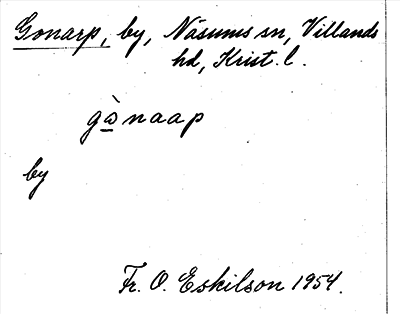 Gonarp, by, Näsums sn, Villands
hd, Krist. l.
gà̱naap
by
Fr. O. Eskilson 1954.